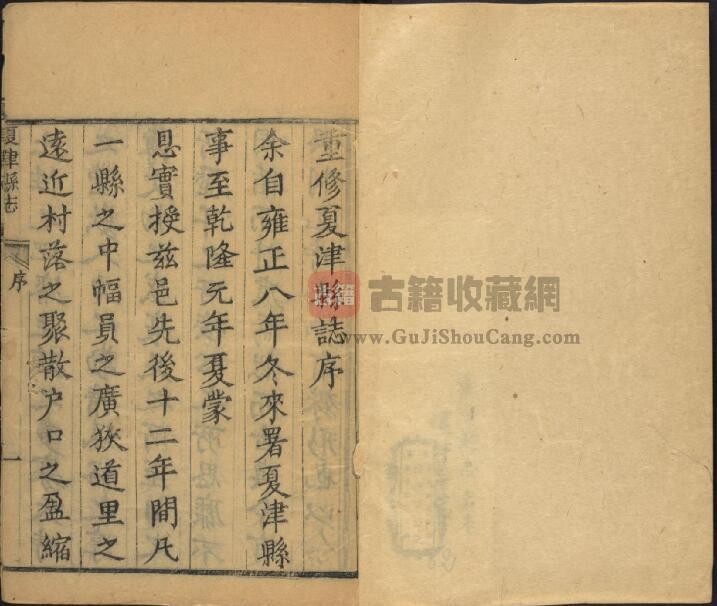 重修夏津縣誌序
余自雍正八年冬來署夏津縣
事至乾隆元年夏蒙
恩實授兹邑先後十二年間凡
一縣之中幅員之廣狹道里之
遠近村落之聚散户口之盈縮
夏津縣志
序
一
古籍
古籍收藏網
www.GuJiShouCang.com